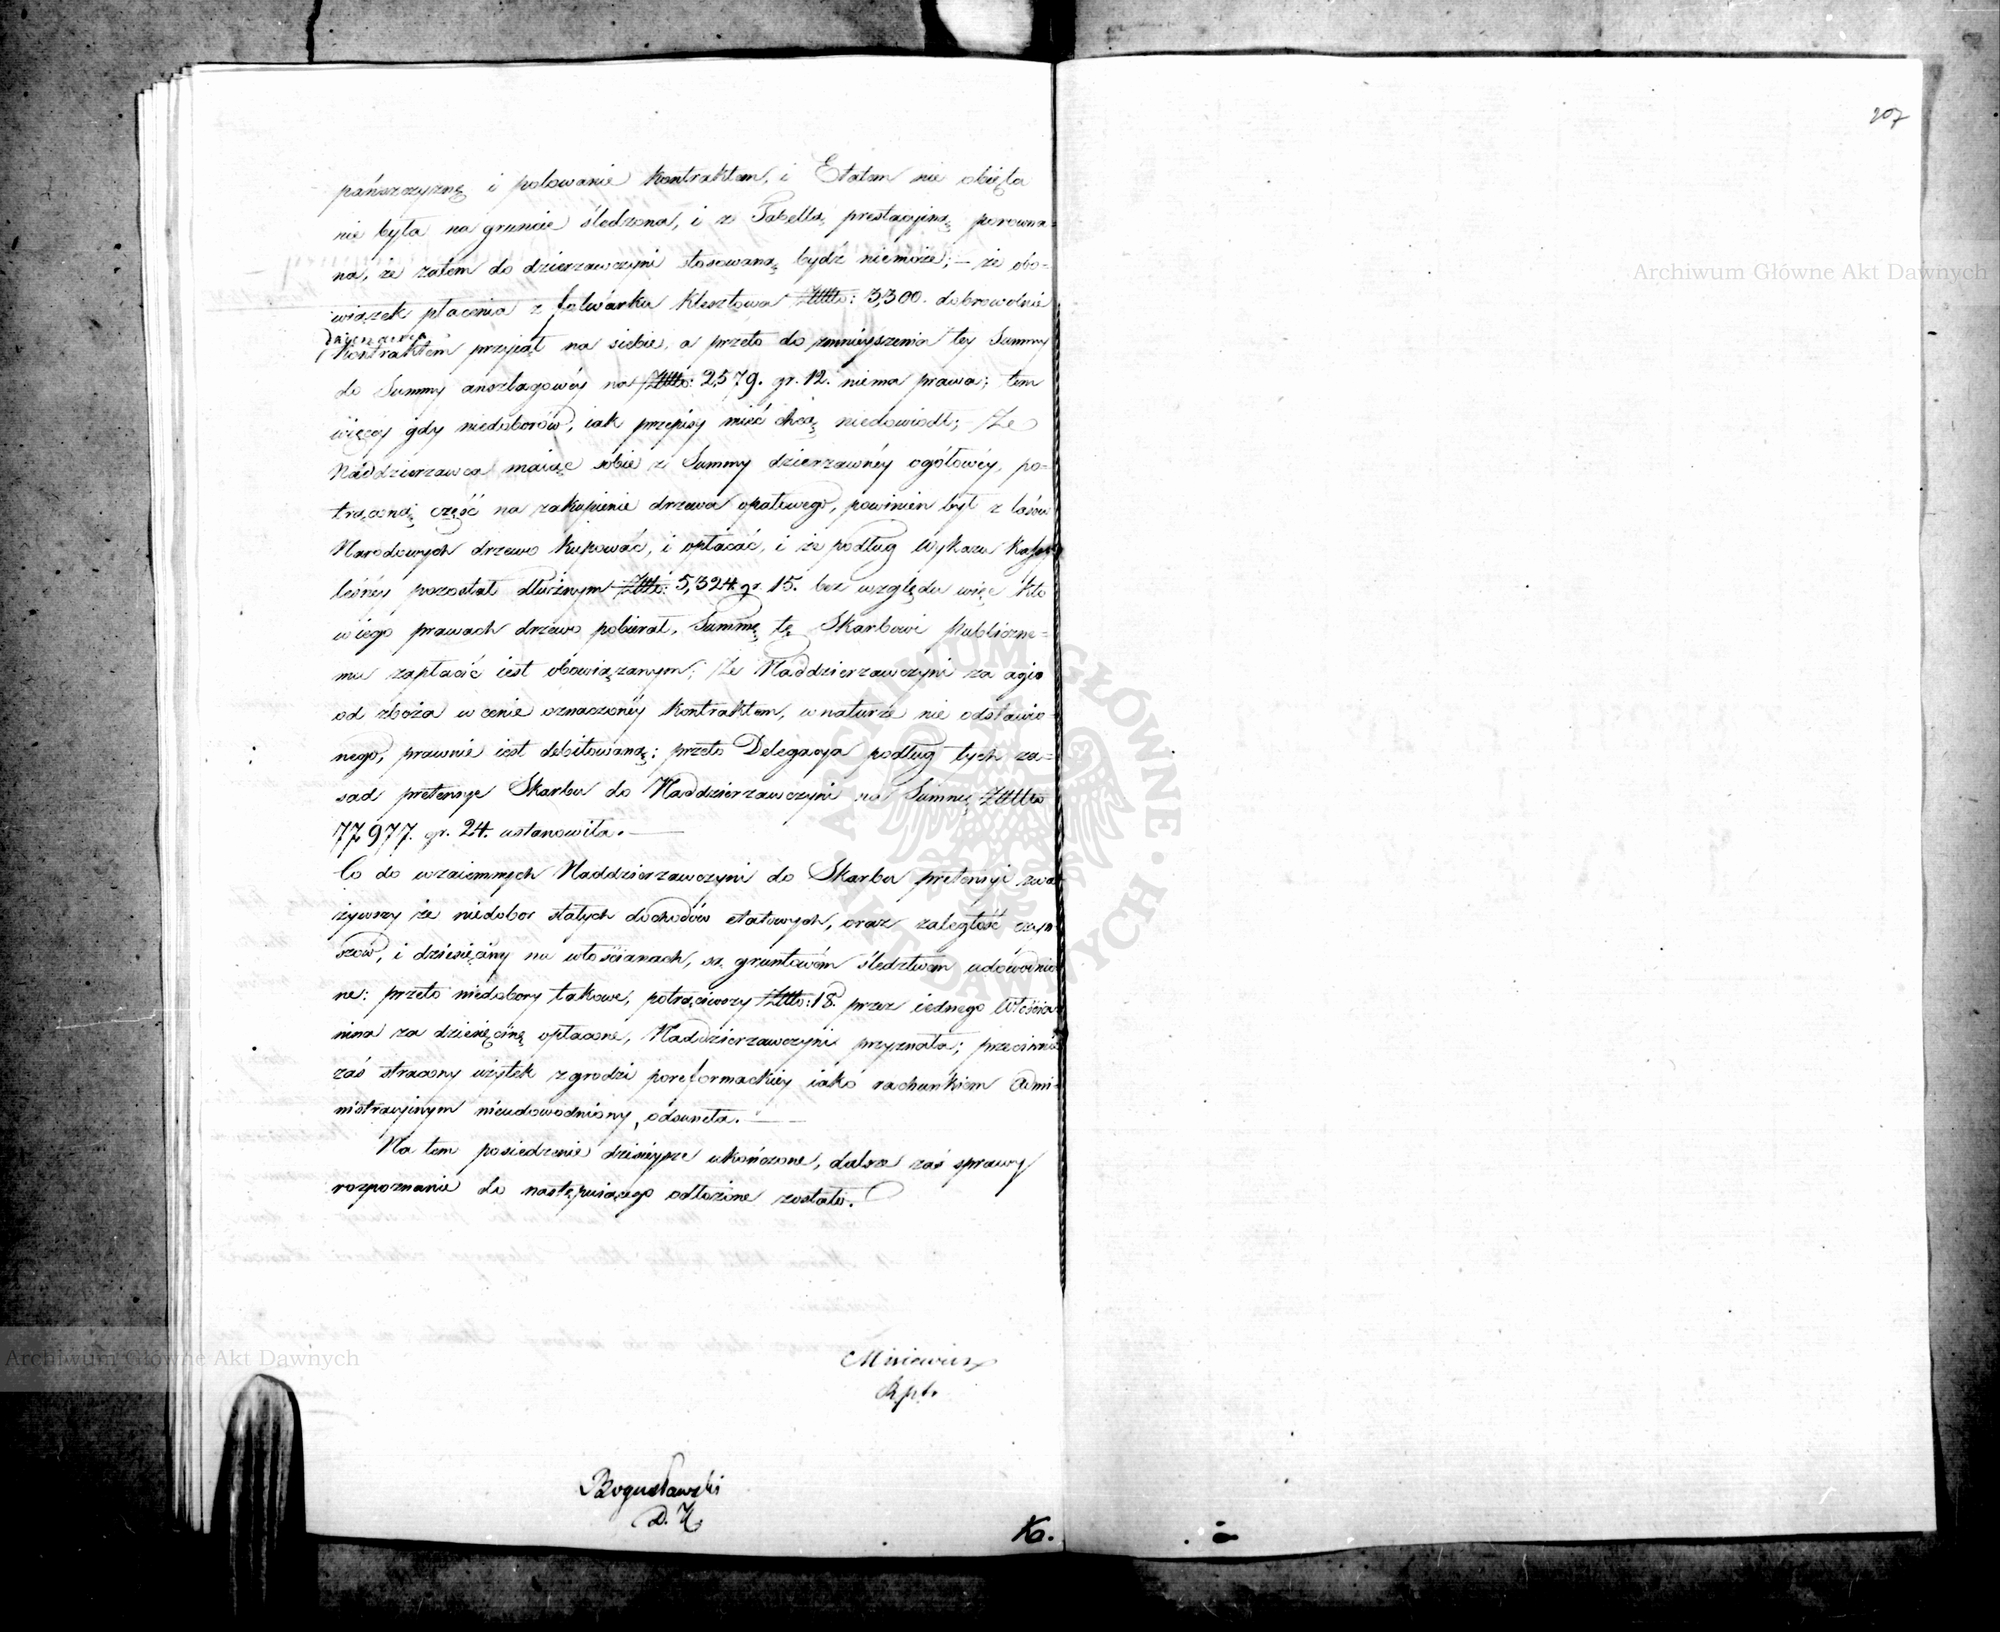 207
pańszczyznę i polowanie kontraktem, i Etatem nie obięta
nie była na gruncie śledzona, i z Tabellą prestacyiną porowna-
na, że zatem do dzierzawczyni stosowaną bydź niemoże; – że obo-
wiązek płacenia z folwarku Klesztowa Złtto: 3,300. dobrowolnie
kontraktem przyiął na siebie, a przeto do zmnieyszenia tey Summy
do Summy anszlagowéy na Złtto: 2,579. gr. 12. niema prawa; tem
więcey gdy niedoborów, iak przepisy mieć chcą niedowiodł; Że
Naddzierzawca maiąc sobie z Summy dzierzawnéy ogółowéy, po-
trąconą część na zakupienie drzewa opałowego, powinien był z lasów
Narodowych drzewo kupować, i opłacać, i że podług Wykazu Kassy
leśnéy pozostał dłużnym Złtto: 5,324. gr. 15. bez względu więc kto
w iego prawach drzewo pobierał, Summę tę Skarbowi Publiczne-
mu zapłacić iest obowiązanym; Że Naddzierzawczyni za agio
od zboża w cenie oznaczonéy kontraktem, w naturze nie odstawio-
nego, prawnie iest debitowaną; przeto Delegacya podług tych za-
sad pretensye Skarbu do Naddzierzawczyni na Summę Złtto
77,977. gr. 24. ustanowiła. –
Co do wzaiemnych Naddzierzawczyni do Skarbu pretensyi zwa-
żywszy że niedobor stałych dochodów etatowych, oraz zaległość czyn-
szów, i dziesięciny na włościanach, są gruntowém śledztwem udowodnio-
ne: przeto niedobory takowe, potrąciwszy Złtto: 18. przez iednego Włościa-
nina za dziesięcinę opłacone, Naddzierzawczyni przyznała; przeciwnie
zaś stracony użytek z grodzi poreformackiéy iako rachunkiem Admi-
nistracyinym nieudowodniony, odsuneła. –
Na tem posiedzenie dzisieysze ukończone, dalsze zaś sprawy
rozpoznanie do następuiącego odłożone zostało.
Misiewicz
Bogusławski
D. K.
Archiwum Główne Akt Dawnych
Archiwum Główne Akt Dawnych
ARCHIWUM GŁÓWNE AKT DAWNYCH